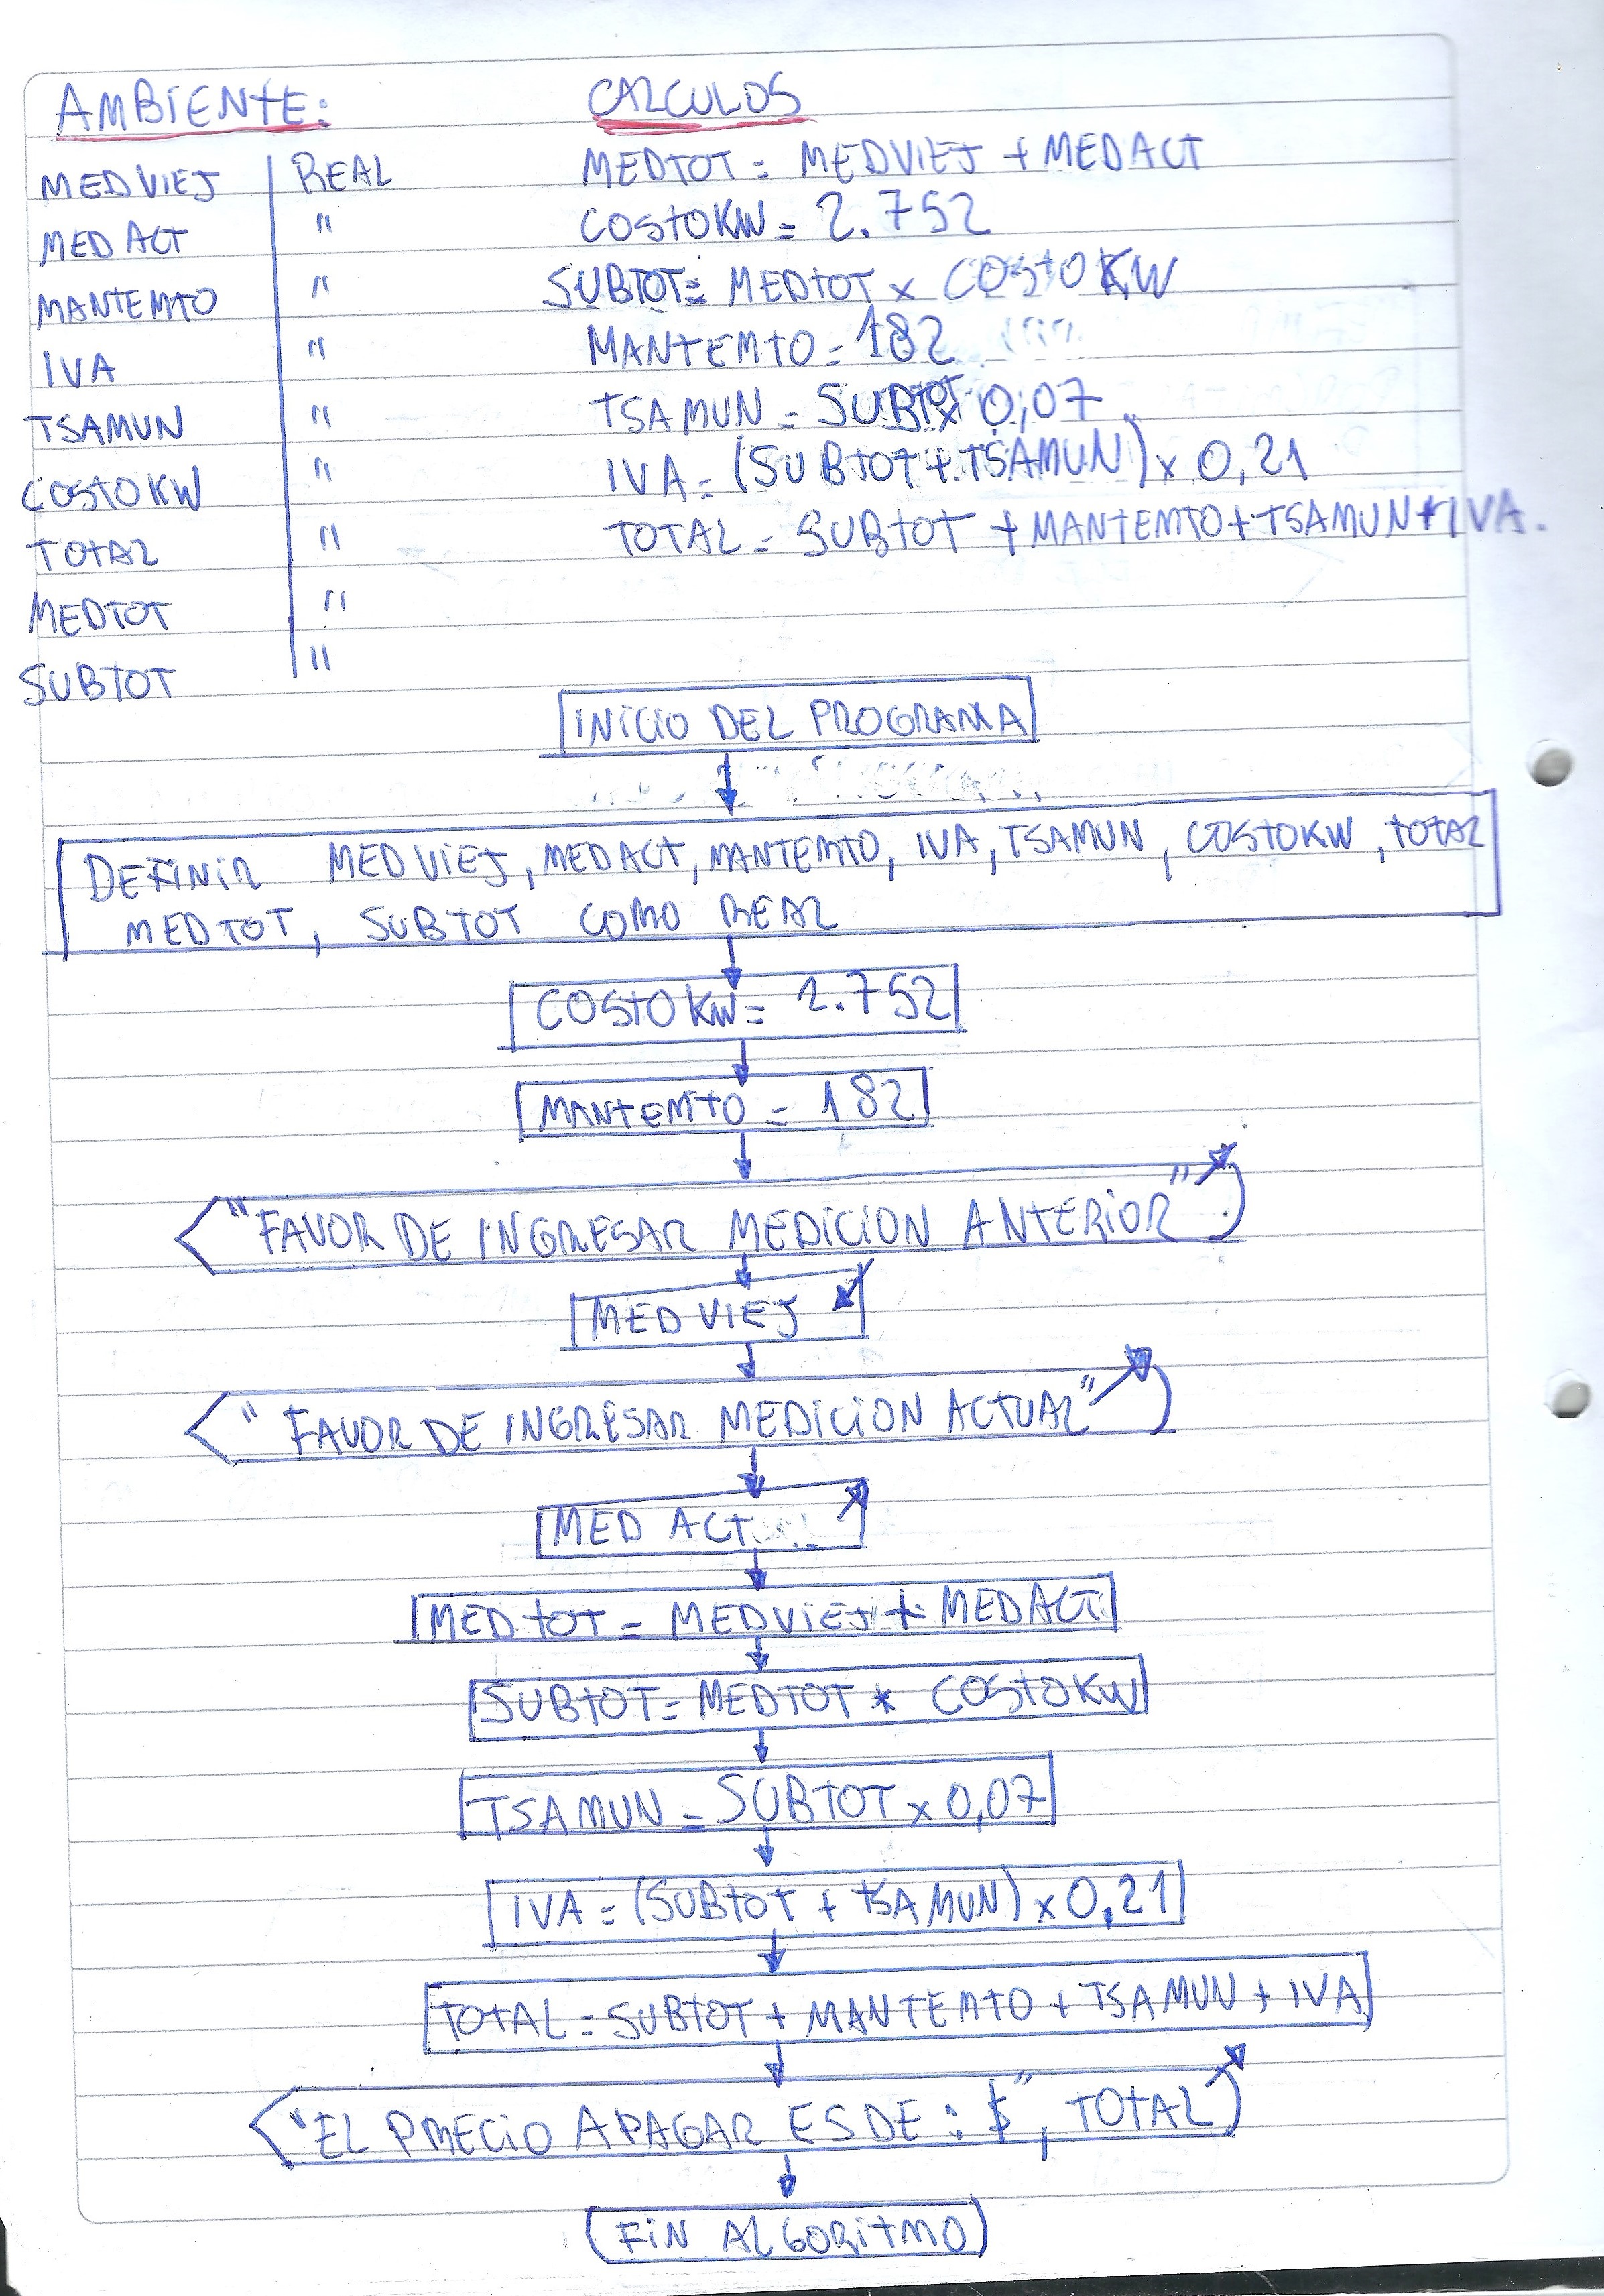 AMBIENTE: CALCULOS
MEDVIEJ REAL MEDTOT = MEDVIEJ + MEDACT
MED ACT " COSTOKW = 2.752
MANTEMTO " SUBTOT = MEDTOT x COSTO KW
IVA " MANTEMTO = 182
TSAMUN " TSAMUN = SUBTOT x 0,07
COSTO KW " IVA = (SUBTOT + TSAMUN) x 0,21
TOTAL " TOTAL = SUBTOT + MANTEMTO + TSAMUN + IVA.
MEDTOT "
SUBTOT "
INICIO DEL PROGRAMA
DEFINIR MEDVIEJ, MEDACT, MANTEMTO, IVA, TSAMUN, COSTOKW, TOTAL
MEDTOT, SUBTOT COMO REAL
COSTO KW = 2.752
MANTEMTO = 182
"FAVOR DE INGRESAR MEDICION ANTERIOR"
MED VIEJ
"FAVOR DE INGRESAR MEDICION ACTUAL"
MED ACT
MEDTOT = MEDVIEJ + MEDACT
SUBTOT = MEDTOT * COSTOKW
TSAMUN = SUBTOT x 0,07
IVA = (SUBTOT + TSAMUN) x 0,21
TOTAL = SUBTOT + MANTEMTO + TSAMUN + IVA
"EL PRECIO A PAGAR ES DE: $", TOTAL
FIN ALGORITMO